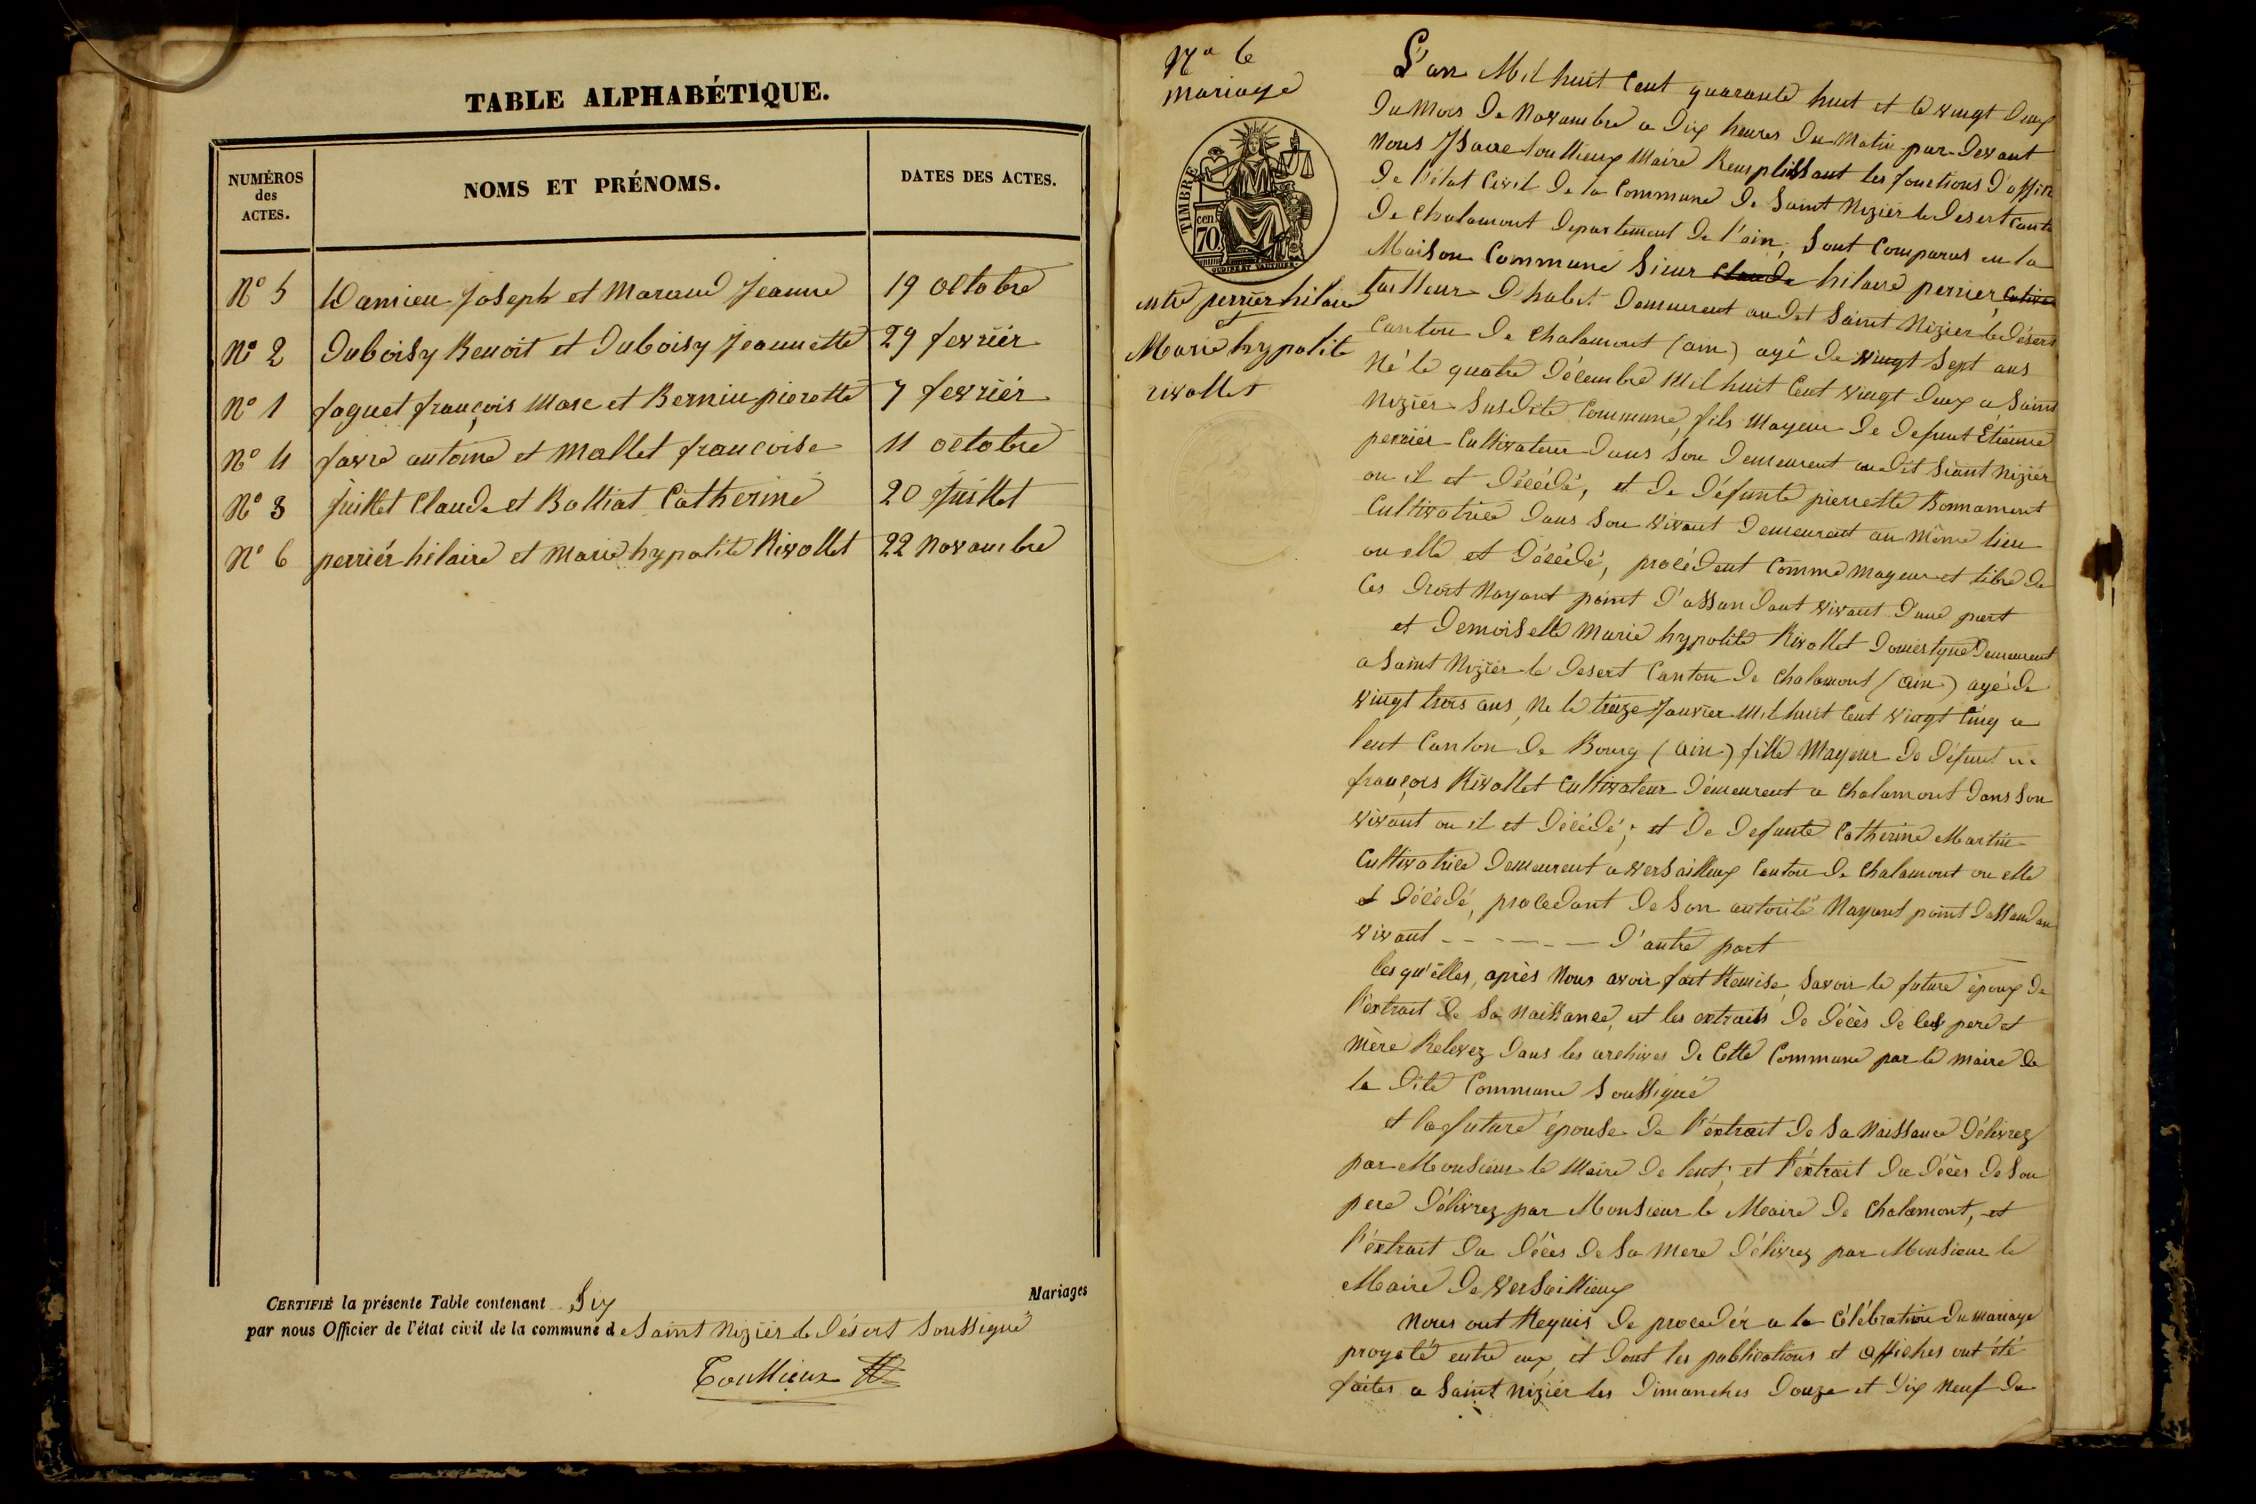 TABLE ALPHABÉTIQUE.
NUMÉROS des ACTES. NOMS ET PRÉNOMS. DATES DES ACTES.
N° 5 Damien Joseph et Maraud Jeanne 19 octobre
N° 2 Duboisy Benoit et Duboisy Jeannette 29 fevriér
N° 1 faguet françois Marc et Bernin pierette 7 fevriér
N° 4 favre antoine et Mallet francoise 11 octobre
N° 3 Juillet Claude et Bolliat Catherine 20 Juillet
N° 6 perriér hilaire et Marie hypolite Rivollet 22 Novambre
CERTIFIÉ la présente Table contenant Six Mariages
par nous Officier de l'état civil de la commune de Saint Niziér le Désert Soussigné
Toullieux
N° 6
mariage
TIMBRE
cen
70
entre perrier hilaire
et
Marie hypolite
rivollet
L'an Mil huit Cent quarante huit et le vingt Deux
Du Mois De Novambre a Dix heures Du Matin par-Devant
Nous Isaac toullieux Maire Remplissant les fonctions D'offi
De l'état Civil De la Commune De Saint Niziér le Desert Cant
De Chalamont Departement De l'ain, Sont Comparus en la
Maison Commune Sieur Claude hilaire perrier Cultiva
tailleur D'habit Demeurent audit Saint Nizier le Désert
Canton De Chalamont (ain) agé De vingt Sept ans
Né le quatre Décembre Mil huit Cent vingt Deux a Saint
Niziér Susdite Commune, fils Mayeur De Defunt Etienne
perriér Cultivateur Dans Son Demeurent audit Siant Niziér
ou il et Décédé, et De Défunte pierrette Bonnamont
Cultivatrice Dans Son vivant Demeurent au Même lieu
ou elle et Décédé, procédent Comme Mayeur et libre De
Ces Droit Nayant point D'assandant vivant D'une part
et Demoiselle Marie hypolite Rivollet Domestque Demeurent
a Saint Niziér le Desert Canton De Chalamont (ain) agé De
vingt trois ans, Né le treize Janvier Mil huit Cent vingt Cinq a
lent Canton De Bourg (ain) fille Mayeur De Défunt
françois Rivollet Cultivateur Démeurent a Chalamont Dans Son
vivant ou il et Décédé; et De Defunte Catherine Martin
Cultivatrice Demeurent a versailleux Canton De Chalamont ou elle
et Décédé, procedant De Son autorité Nayant point Dassandan
vivant - - - - - - D'autre part
lesqu'elles, après Nous avoir fait Remise, Savoir le future époux De
l'extrait De Sa Naissance, et les extraits De Décès De Ces pere et
mère Relevez Dans les archives De Cette Commune par le maire De
la Dite Commune Soussigné
et la future épouse De l'éxtrait De Sa Naissance Délivrez
par Monsieur le Maire De lent; et l'éxtrait Du Décès De Son
pere Délivrez par Monsieur le Maire De Chalamont, et
l'éxtrait Du Décès De Sa Mere Délivrez par Monsieur le
Maire De Versaillieux
Nous ont Requis De procedér a la Célébration Du mariage
proyeté entre eux, et Dont les publications et affiches ont été
faites a Saint niziér les Dimanches Douze et Dix Neuf Du